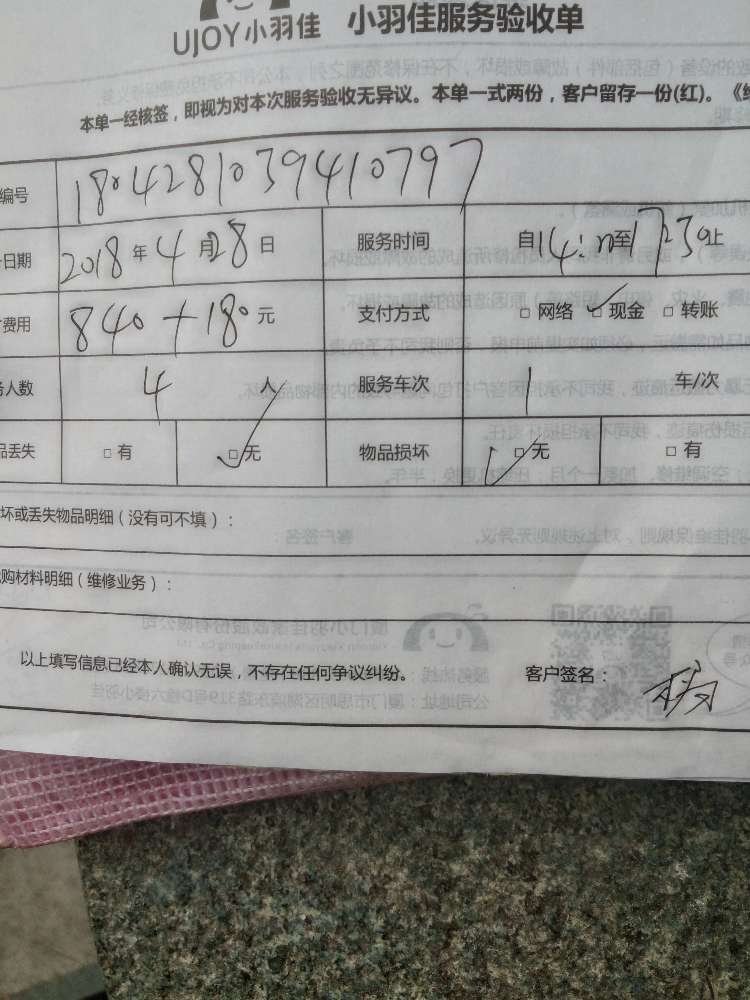 UJOY小羽佳 小羽佳服务验收单
本单一经核签，即视为对本次服务验收无异议。本单一式两份，客户留存一份(红)。
编号 180428103941079​7
日期 2018年4月28日 服务时间 自14:至17:30止
费用 840+180元 支付方式 □网络 ☑现金 □转账
人数 4人 服务车次 1车/次
品丢失 □有 ☑无 物品损坏 ☑无 □有
坏或丢失物品明细（没有可不填）：
购材料明细（维修业务）：
以上填写信息已经本人确认无误，不存在任何争议纠纷。 客户签名：